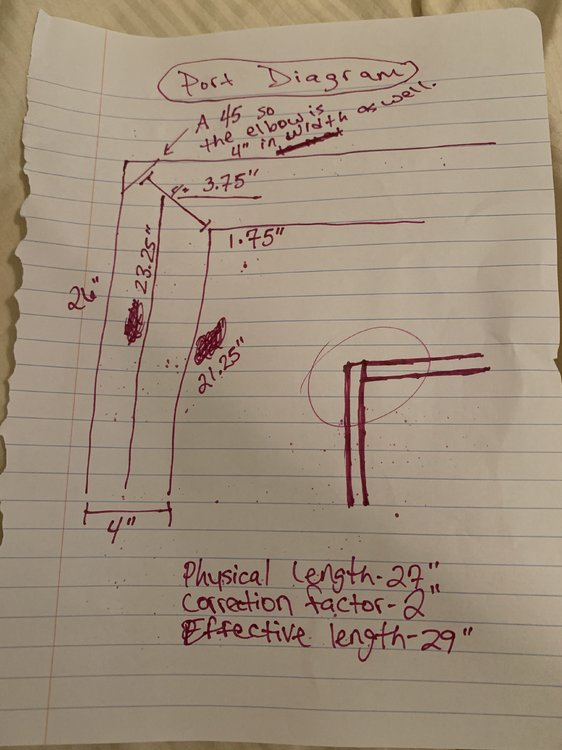 Port Diagram
A 45 so
the elbow is
4" in width as well.
3.75"
1.75"
26"
23.25"
21.25"
4"
Physical length-27"
Correction factor-2"
Effective length-29"